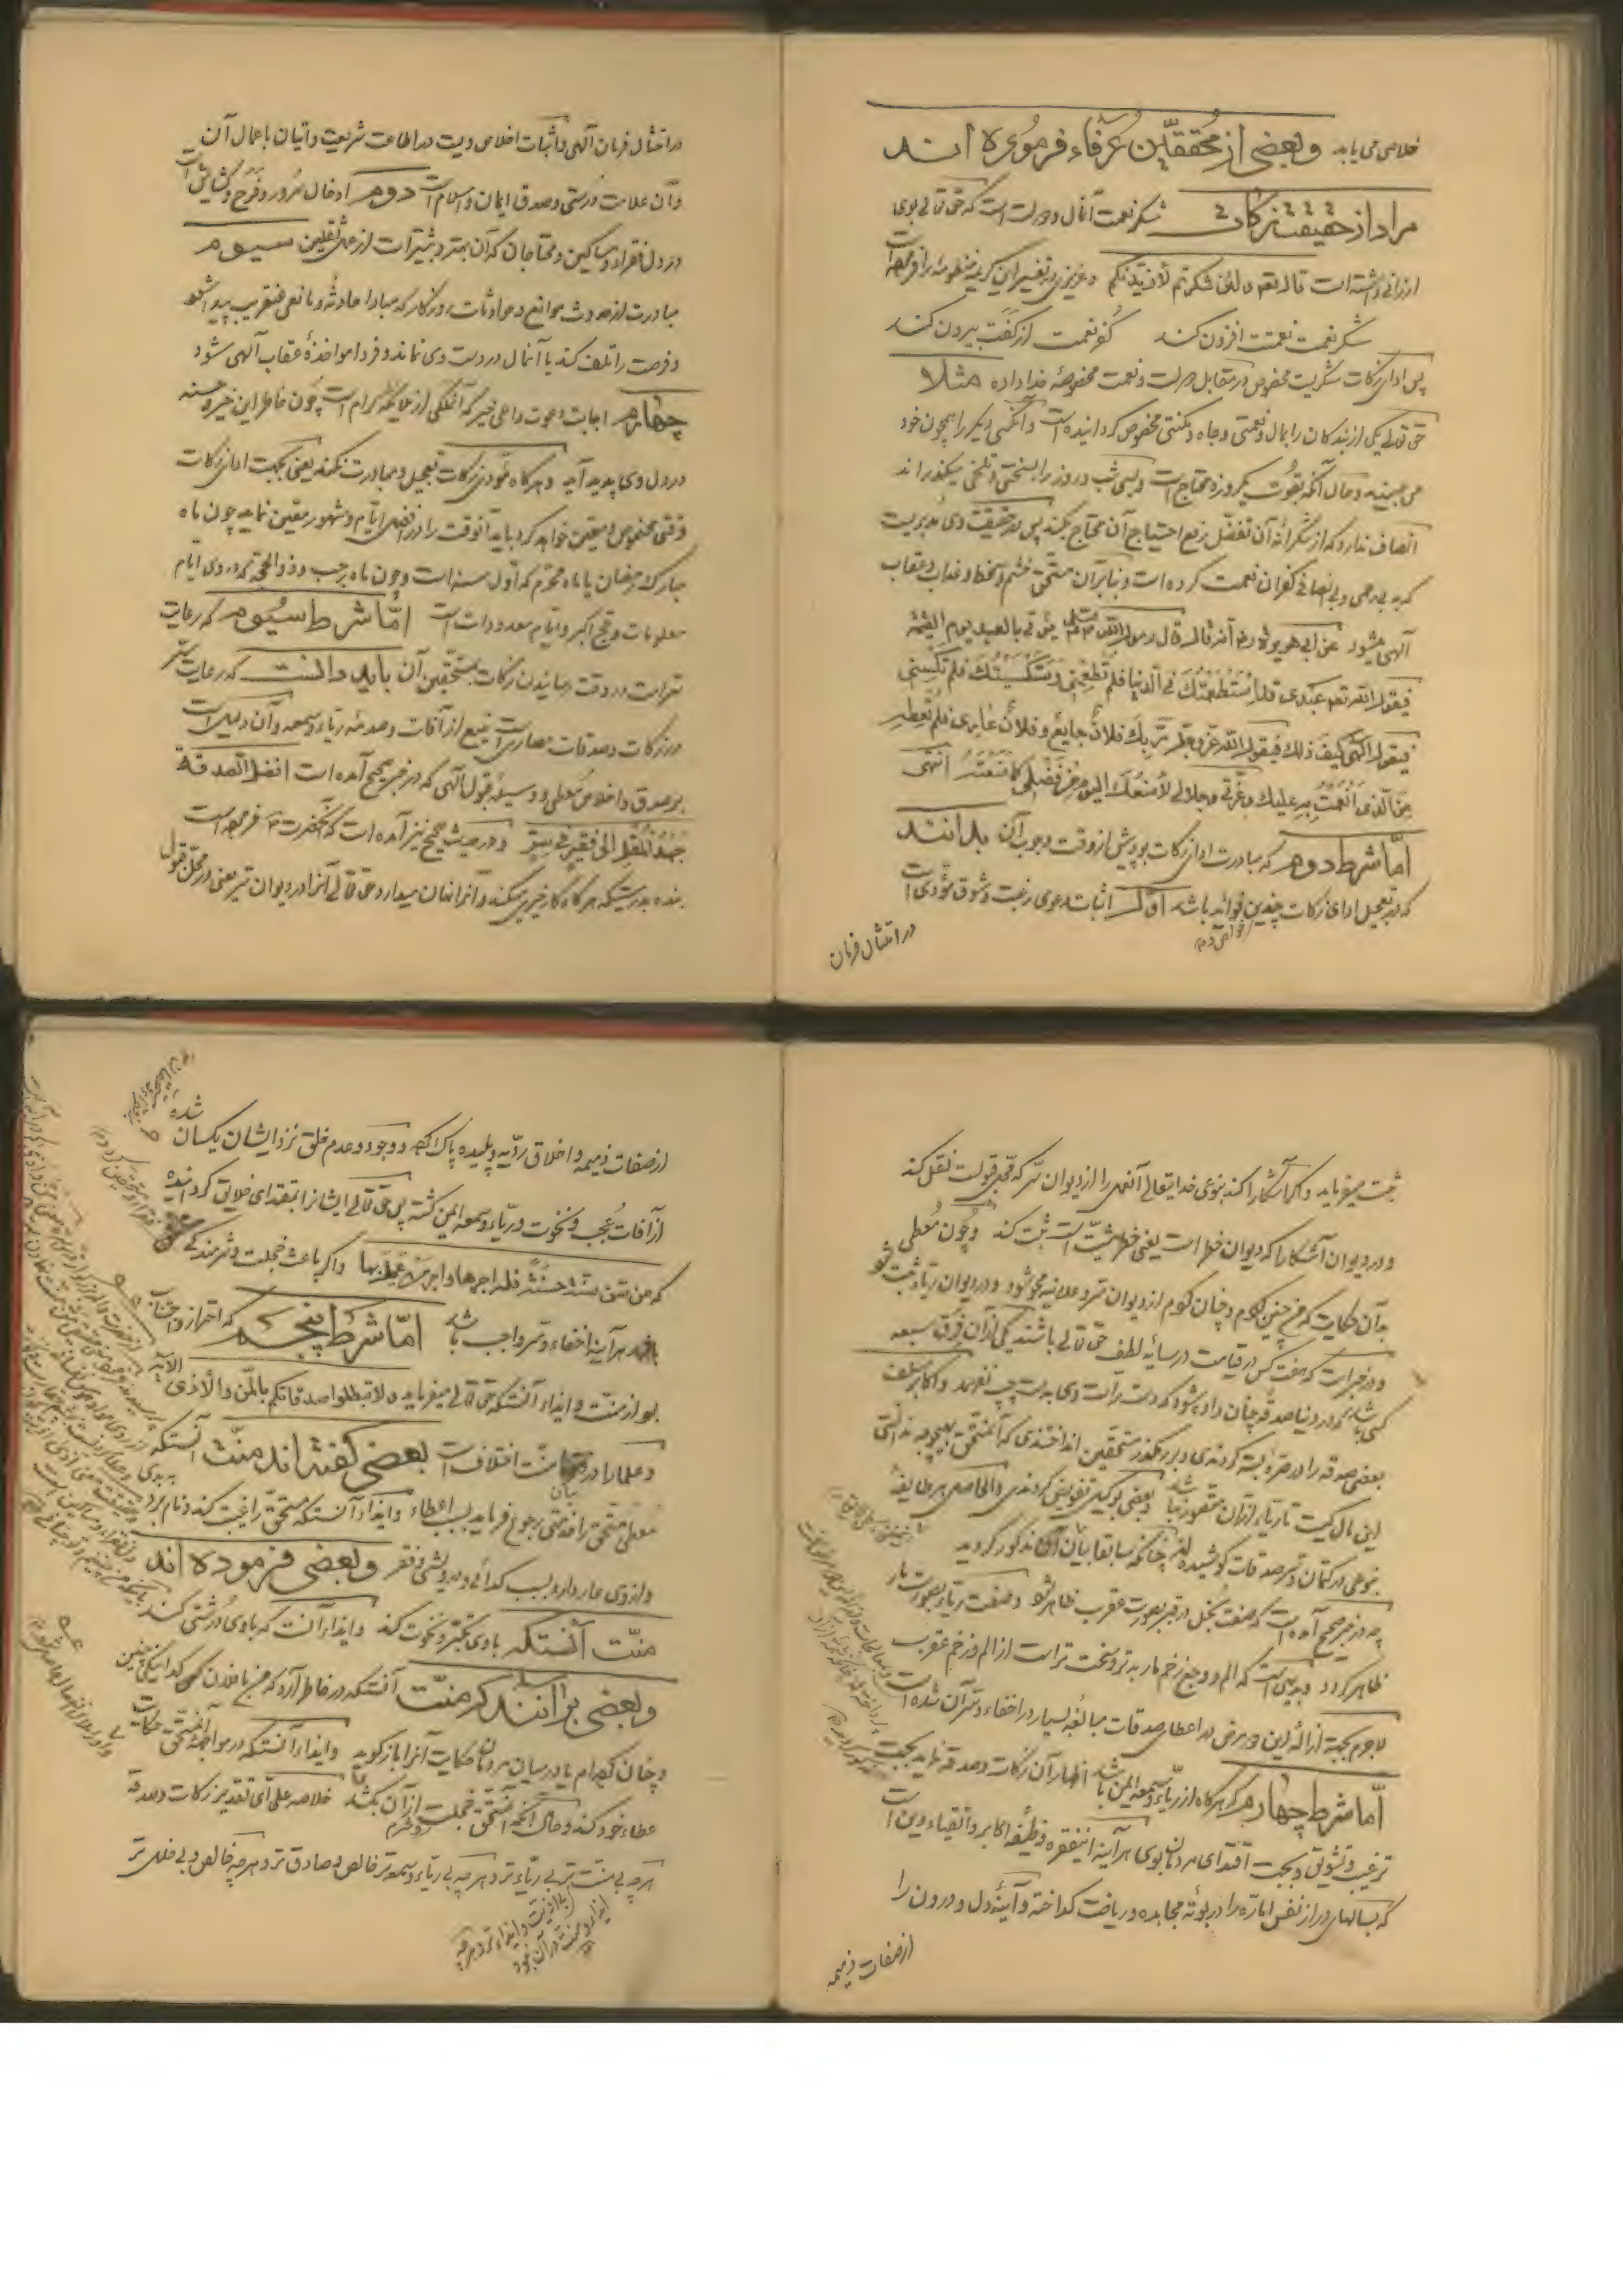 خلاصی می یابد وبعضی از محققین عرفاء فرموده اند
مراد از حقیقت زکات شکر نعمت آنمال و دولت است که حق تعالی بوی
ارزانی داشته است قال الله تعم ولئن شکرتم لأزیدنکم وعزیزی در تفسیر این کریمه منظومه را فرموده است
شکر نعمت نعمتت افزون کند کفر نعمت از کفت بیرون کند
پس ادای زکات شکریت مخصوص در مقابل دولت و نعمت مخصوصهٔ خدا داده مثلا
حق تعالی یکی از بندکان را بمال و نعمتی وجاه و مکنتی مخصوص کردانیده است و آنکس دیکر را همچون خود
می بیند و حال آنکه بقوت یکروزه محتاج است وبسی شب و روز را بسختی و تلخی میکذراند
انصاف ندارد که از شکرانهٔ آن تفضل رفع احتیاج آن محتاج بکند پس در حقیقت وی مدبریست
که به بی رحمی و بی انصافی کفران نعمت کرده است و بنابرآن مستحق خشم و سخط و عذاب و عقاب
آلهی میشود عن ابی هریرة رضه أنه قال قال رسول الله صلعم یؤتی بالعبد یوم القیمة
فیقول الله تعم عبدی قد استطعمتک فی الدنیا فلم تطعمنی واستکسیتک فلم تکسنی
فیقول الهی کیف ذلک فیقول الله عز وجل مر بک فلان جایع و فلان عاری فلم تعطه
من الذی أنعمت به علیک وعزتی وجلالی لأمنعک الیوم من فضلی کما منعته انتهی
اما شرط دوم که مبادرت ادای زکات بود پیش از وقت وجوب آن بدانند
که در تعجیل ادای زکات چندین فوائد باشد اول اثبات دعوی رغبت و شوق مؤدی است
در امتثال فرمان
در امتثال فرمان آلهی واثبات اخلاص ویست در اطاعت شریعت و اتیان باعمال آن
وآن علامت درستی وصدق ایمان واسلام است دوم ادخال سرور و فرح و کشایش است
در دل فقراء ومساکین ومحتاجان که آن بهتر وبیشتر است از عمل ثقلین سیوم
مبادرت از حدوث موانع و حوادثات روزکار که مبادا حادثه و مانعی عنقریب پیدا شود
و فرصت را تلف کند یا آنمال در دست وی نماند و فردا مواخذهٔ عقاب آلهی شود
چهارم اجابت دعوت داعی خیر که آنملکی از ملائکهٔ کرام است چون خاطر این خیر وحسنه
در دل وی پدید آید وهرکاه مؤدی زکات تعجیل و مبادرت نکند یعنی بجهت ادای زکات
وقتی مخصوص را معین خواهد کرد باید آنوقت را از افضل ایام و شهور معین نماید چون ماه
مبارک رمضان یا ماه محرم که اول سنه است وچون ماه رجب وذو الحجه که در وی ایام
معلومات و حج اکبر و ایام معدودات است اما شرط سیوم که رعایت
سر است در وقت رسانیدن زکات بمستحقین آن باید دانست که رعایت ستر
در زکات وصدقات حصاریست منیع از آفات وصدمهٔ ریاء وسمعه وآن دلیل است
بر صدق واخلاص معطی و وسیلهٔ قبول آلهی که در خبر صحیح آمده است افضل الصدقة
جهد المقل الی فقیر فی ستر و در حدیث صحیح نیز آمده است که آنحضرت صم فرموده است
بنده بدرستیکه هرکاه کار خیری میکند و آنرا نهان میدارد حق تعالی آنرا در دیوان سر یعنی در محل قبول
ثبت میفرماید و اکر آشکارا کند بنوعی خدایتعالی آنعمل را از دیوان سر که محل قبولست نقل کند
و در دیوان آشکارا که دیوان خطر است یعنی خطر مشیت است ثبت کند وچون معطی
بدان حکایت که من چنین کردم و چنان کردم از دیوان سر و علانیه محو شود و در دیوان ریاء ثبت شود
و در خبر است که هفت کس در قیامت در سایهٔ لطف حق تعالی باشند یکی از آن فرق سبعه
کسی باشد که در دنیا صدقه چنان داده شود که دست راست وی بدست چپ نفهمد و اکابر سلف
بعضی صدقه را در صره بسته کردندی و بر رهکذر مستحقین انداختندی که آنمستحق بهیچوجه ندانستی
این مال کیست تا ریاء از آن مقصور نباشد وبعضی بوکیلی تفویض کردندی والحاصل هر طایفه
بنوعی در کتمان و سر صدقات کوشیده اند چنانکه سابقا بیان آن مذکور کردید
چه در خبر صحیح آمده است که صفت بخل در قبر بصورت عقرب ظاهر شود وصفت ریاء بصورت مار
ظاهر کردد وبدیهی است که الم و وجع زخم مار بدتر وسخت تر است از الم و زخم عقرب
لاجرم بجهة ازالهٔ این دو مرض در اعطاء صدقات مبالغهٔ بسیار در اخفاء و ستر آن شده است
اما شرط چهارم که هرکاه از ریاء وسمعه ایمن باشد اظهار آن زکات وصدقه نماید بجهت
ترغیب وتشویق وبجهت اقتدای مردمان بوی هر آینه اینفقره وظیفهٔ اکابر و اتقیاء دین است
که بسالهای دراز نفس اماره را در بوتهٔ مجاهده و ریاضت کداخته و آئینهٔ دل و درون را
از صفات ذمیمه
از صفات ذمیمه و اخلاق ردیه و پلیده پاک کرده و وجود و عدم خلق نزد ایشان یکسان شده
از آفات عجب و نخوت و ریاء وسمعه ایمن کشته پس حق تعالی ایشانرا مقتدای خلایق کردانیده
که من سن سنة حسنة فله اجرها واجر من عمل بها واکر باعث خجلت وشرمندکی
باشد هر آینه اخفاء وسر واجب باشد اما شرط پنجم که احتراز واجتناب
بود از منت وایذاء آنستکه حق تعالی میفرماید ولا تبطلوا صدقاتکم بالمن والأذی الآیه
وعلما را در بیان منت اختلاف است بعضی کفته اند منت آنستکه
معطی مستحق را خدمتی رجوع فرماید بسبب اعطاء وایذاء آنستکه مستحق را غیبت کند و نام برد
و از وی عار دارد بسبب کدائی و درویشی و فقر وبعضی فرموده اند
منت آنستکه با وی تکبر و نخوت کند وایذاء آنست که با وی درشتی کند
وبعضی برانند که منت آنستکه در خاطر آرد که من با فلان کدا نیکی چنین
وچنان کردم یا در میان مردمان حکایت آنرا باز کوید وایذاء آنستکه در مواجههٔ آنمستحق حکایت
عطاء خود کند وحال آنکه آنمستحق خجلت وشرم از آن بکشد خلاصه علی ای تقدیر زکات وصدقه
هرچه بی منت تر بی ریاء تر وهرچه بی ریاء وسمعه تر خالص و صادق تر وهرچه خالص و بی خلل تر